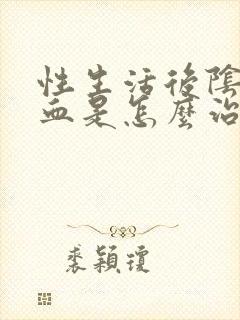 性生活後陰
血是怎麼治
裘穎瓊